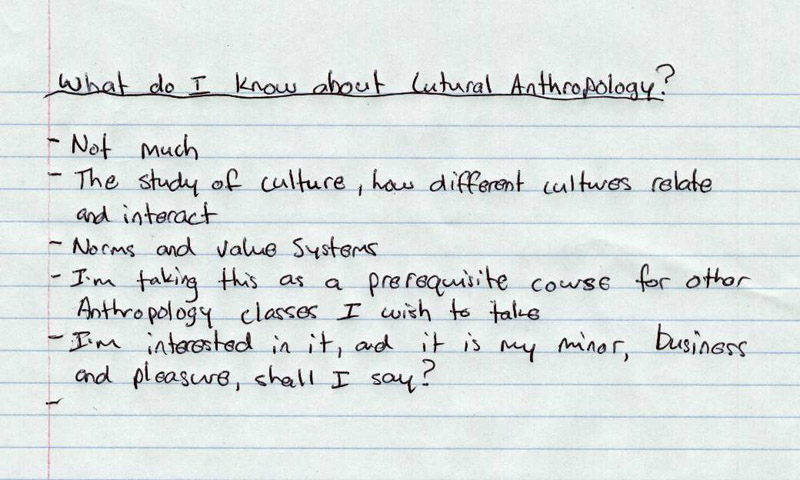 What do I know about Cutural Anthropology?
- Not much
- The study of culture, how different cultures relate
and interact
- Norms and value systems
- I'm taking this as a prerequisite course for other
Anthropology classes I wish to take
- I'm interested in it, and it is my minor, business
and pleasure, shall I say?
-